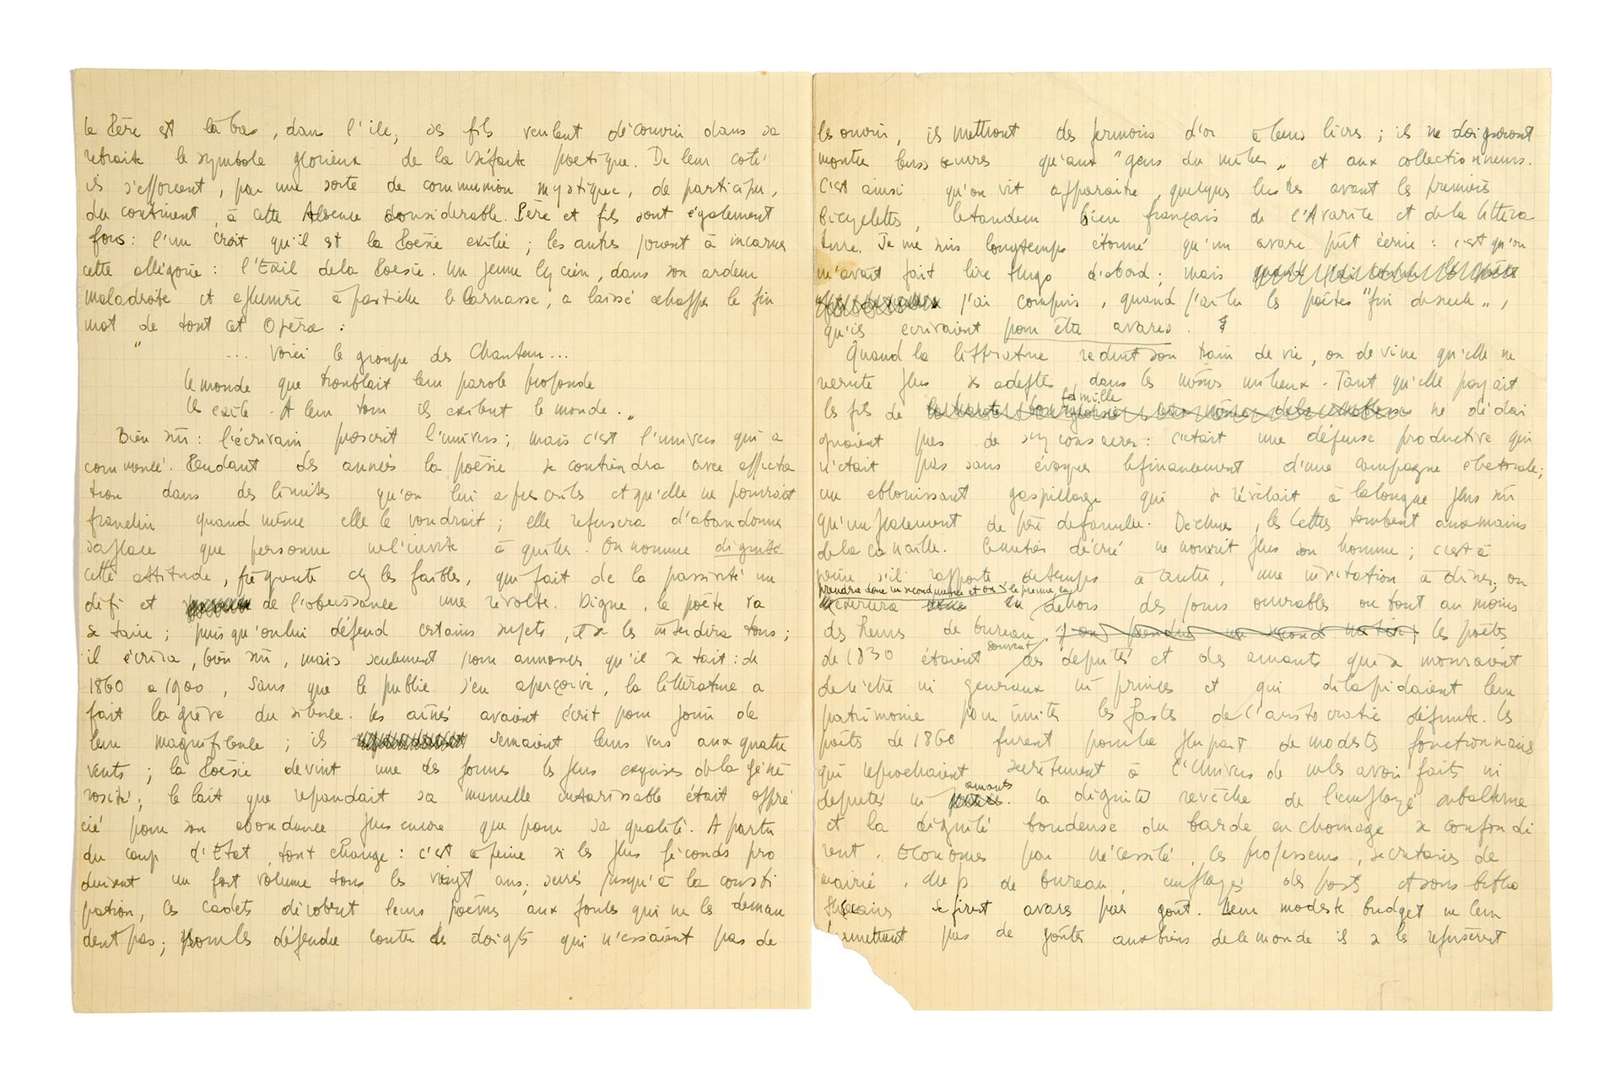 le Père est là bas, dans l'ile, ses fils veulent découvrir dans sa
retraite le symbole glorieux de la défaite poétique. De leur coté
ils s'efforcent, par une sorte de communion mystique, de participer,
du continent, à cette Absence considerable. Père et fils sont également
fous: l'un croit qu'il est la Poésie exilée; les autres jouent à incarner
cette allégorie: l'Exil de la Poesie. Un jeune lycéen, dans son ardeur
maladroite et à pasticher le Parnasse, a laissé echapper le fin
mot de tout cet Opéra:
" ... Voici le groupe des Chanteurs...
Le monde que troublait leur parole profonde
Les exile. A leur tour ils exilent le monde."
Bien sûr: l'écrivain proscrit l'univers; mais c'est l'univers qui a
commencé. Pendant des années la poésie se contiendra avec affecta
tion dans des limites qu'on lui a prescrites et qu'elle ne pourrait
franchir quand même elle le voudrait; elle refusera d'abandonner
sa place que personne ne l'invite à quitter. On nomme dignité
cette attitude, fréquente chez les faibles, qui fait de la passivité un
défi et de l'obeissance une révolte. Digne, le poète va
se taire; puisqu'on lui défend certains sujets, il se les interdira tous;
il écrira, bien sûr, mais seulement pour annoncer qu'il se tait: de
1860 a 1900, sans que le public s'en aperçoive, la littérature a
fait la grève du silence. Les ainés avaient écrit pour jouir de
leur magnificence; ils semaient leurs vers aux quatre
vents; la Poésie devint une des formes les plus exquises de la géné
rosité; le lait que repandait sa mamelle intarissable était appré
cié pour son abondance plus encore que pour sa qualité. A partir
du coup d'Etat, tout change: c'est a peine si les plus féconds pro
duisent un fort volume tous les vingt ans; serrés jusqu'à la consti
pation, les cadets dérobent leurs poèmes aux foules qui ne les deman
dent pas; pour les défendre contre des doigts qui n'essaient pas de
les ouvrir, ils mettront des fermoirs d'or a leurs livres; ils ne daigneront
montrer leurs œuvres qu'aux "gens du métier" et aux collectionneurs.
C'est ainsi qu'on vit apparaitre, quelques lustres avant les premières
bicyclettes, le tandem bien français de l'Avarice et de la littéra
ture. Je me suis longtemps étonné qu'un avare pût écrire: c'est qu'on
m'avait fait lire Hugo d'abord; mais
j'ai compris, quand j'ai lu les poètes "fin de siècle",
qu'ils ecrivaient pour être avares.
Quand la littérature reduit son train de vie, on devine qu'elle ne
recrute plus ses adeptes dans les mêmes milieux. Tant qu'elle payait
les fils de famille ne dédai
gnaient pas de s'y consacrer: c'etait une dépense productive qui
n'etait pas sans évoquer le financement d'une campagne electorale;
un eblouissant gaspillage qui se révélait à la longue plus sûr
qu'un placement de père de famille. Déchues, les Lettres tombent aux mains
de la canaille. Ce metier décrié ne nourrit plus son homme; c'est à
peine s'il rapporte de temps à autre, une invitation à diner; on
prendra donc un second metier et on
ecrira en dehors des jours ouvrables ou tout au moins
des heures de bureau. les poètes
de 1830 étaient souvent des deputés et des amants qui se mouraient
de n'être ni generaux ni princes et qui dilapidaient leur
patrimoine pour imiter les fastes de l'aristocratie défunte. Les
poètes de 1860 furent pour la plupart de modestes fonctionnaires
qui reprochaient secrètement à l'Univers de ne les avoir faits ni
deputés ni amants. La dignité revêche de l'employé subalterne
et la dignité boudeuse du barde en chomage se confondi
rent. Economes par nécessité, ces professeurs, secretaires de
mairie, chefs de bureau, employés des postes et sous-biblio
thécaires se firent avares par goût. Leur modeste budget ne leur
permettant pas de goûter aux biens de ce monde ils se les refusèrent